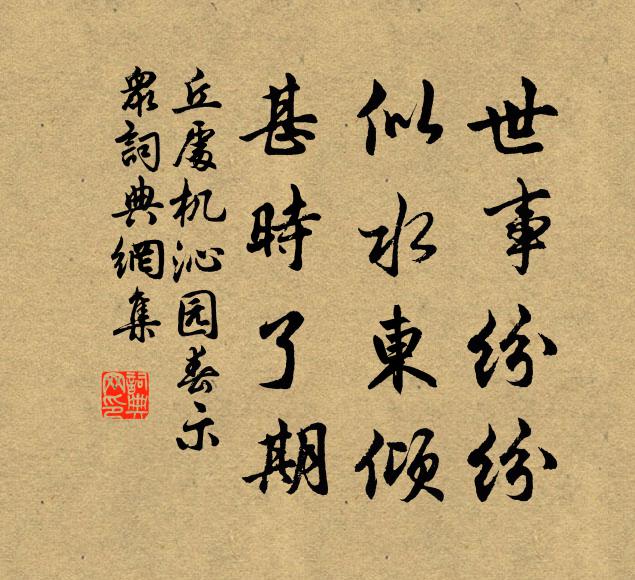 世事紛紛
似水東傾
甚時了期
丘處机沁园春示
眾詞典網集
詞典